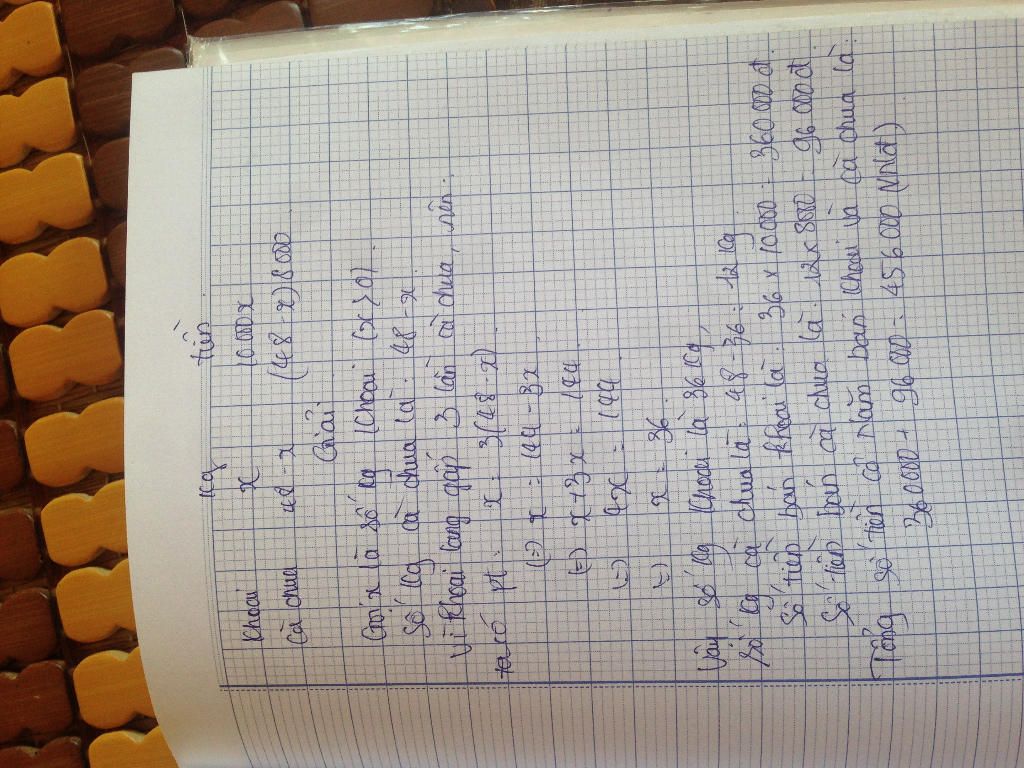 Kg tiền
Khoai x 10.000x
Cà chua 48-x (48-x)8000
Giải
Gọi x là số kg khoai (x>0)
Số kg cà chua là: 48-x
Vì khoai lang gấp 3 lần cà chua, nên:
ta có pt: x = 3(48-x)
(=) x = 144-3x
(=) x+3x = 144
(=) 4x = 144
(=) x = 36
Vậy số kg khoai là 36kg
Số kg cà chua là: 48-36 = 12kg
Số tiền bán khoai là: 36 x 10000 = 360000đ.
Số tiền bán cà chua là: 12x 8000 = 96.000đ.
Tổng số tiền cô năm bán khoai và cà chua là:
360000 + 96000 = 456000 (VNđ)